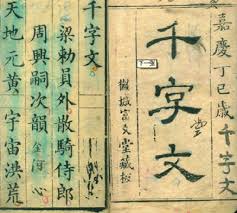 嘉慶丁巳歲千字文
千字文
城富文堂藏板
千字文
梁勅員外散騎侍郎
周興嗣次韻
天地元黃宇宙洪荒